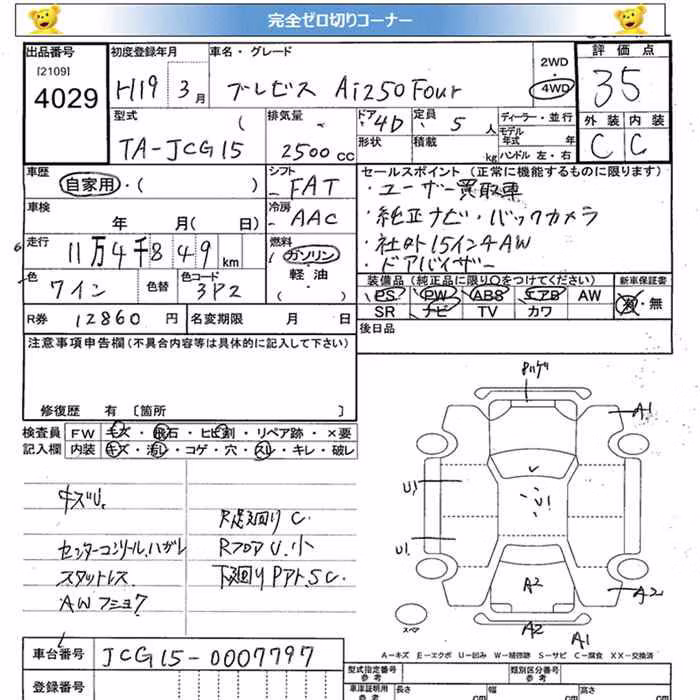 完全ゼロ切りコーナー
出品番号 初度登録年月 車名・グレード 2WD 4WD 評価点
[2109]
4029 H19年 3月 ブレビス Ai250 Four 35
型式 ( 排気量 ドア 4D 定員 5人 ディーラー・並行 外装 内装
TA-JCG15 2500cc 形状 積載 kg モデル年式 年 ハンドル 左・右 C C
車歴 シフト セールスポイント (正常に機能するものに限ります)
自家用・( ) FAT ・ユーザー買取車
車検 冷房 ・純正ナビ・バックカメラ
年 月( 日) AAC ・社外15インチAW
走行 燃料 ・ドアバイザー
11万4千849km ガソリン
軽油
( )
色 色替 色コード 装備品 (純正品に限り○をつけてください) 新車保証書
ワイン 3P2 PS PW ABS エアB AW 有・無
SR ナビ TV カワ
R券 12860円 名変期限 月 日 後日品
注意事項申告欄(不具合内容等は具体的に記入して下さい)
修復歴 有 〔箇所 〕
検査員 FW キズ・飛石・ヒビ割・リペア跡・×要
記入欄 内装 キズ・汚し・コゲ・穴・スレ・キレ・破レ
キズU.
センターコンソール、ハガレ
スタットレス
AW
R足廻りC.
RフロアU.小
下廻りPアト.S.C.
A1
U1
U1
U1
A2
A2
A2
A1
スペア
A=キズ E=エクボ U=凹み W=補修跡 S=サビ C=腐食 XX=交換済
車台番号 JCG15-0007797
登録番号
型式指定番号 類別区分番号
車庫証明用参考 長さ cm 幅 cm 高さ cm